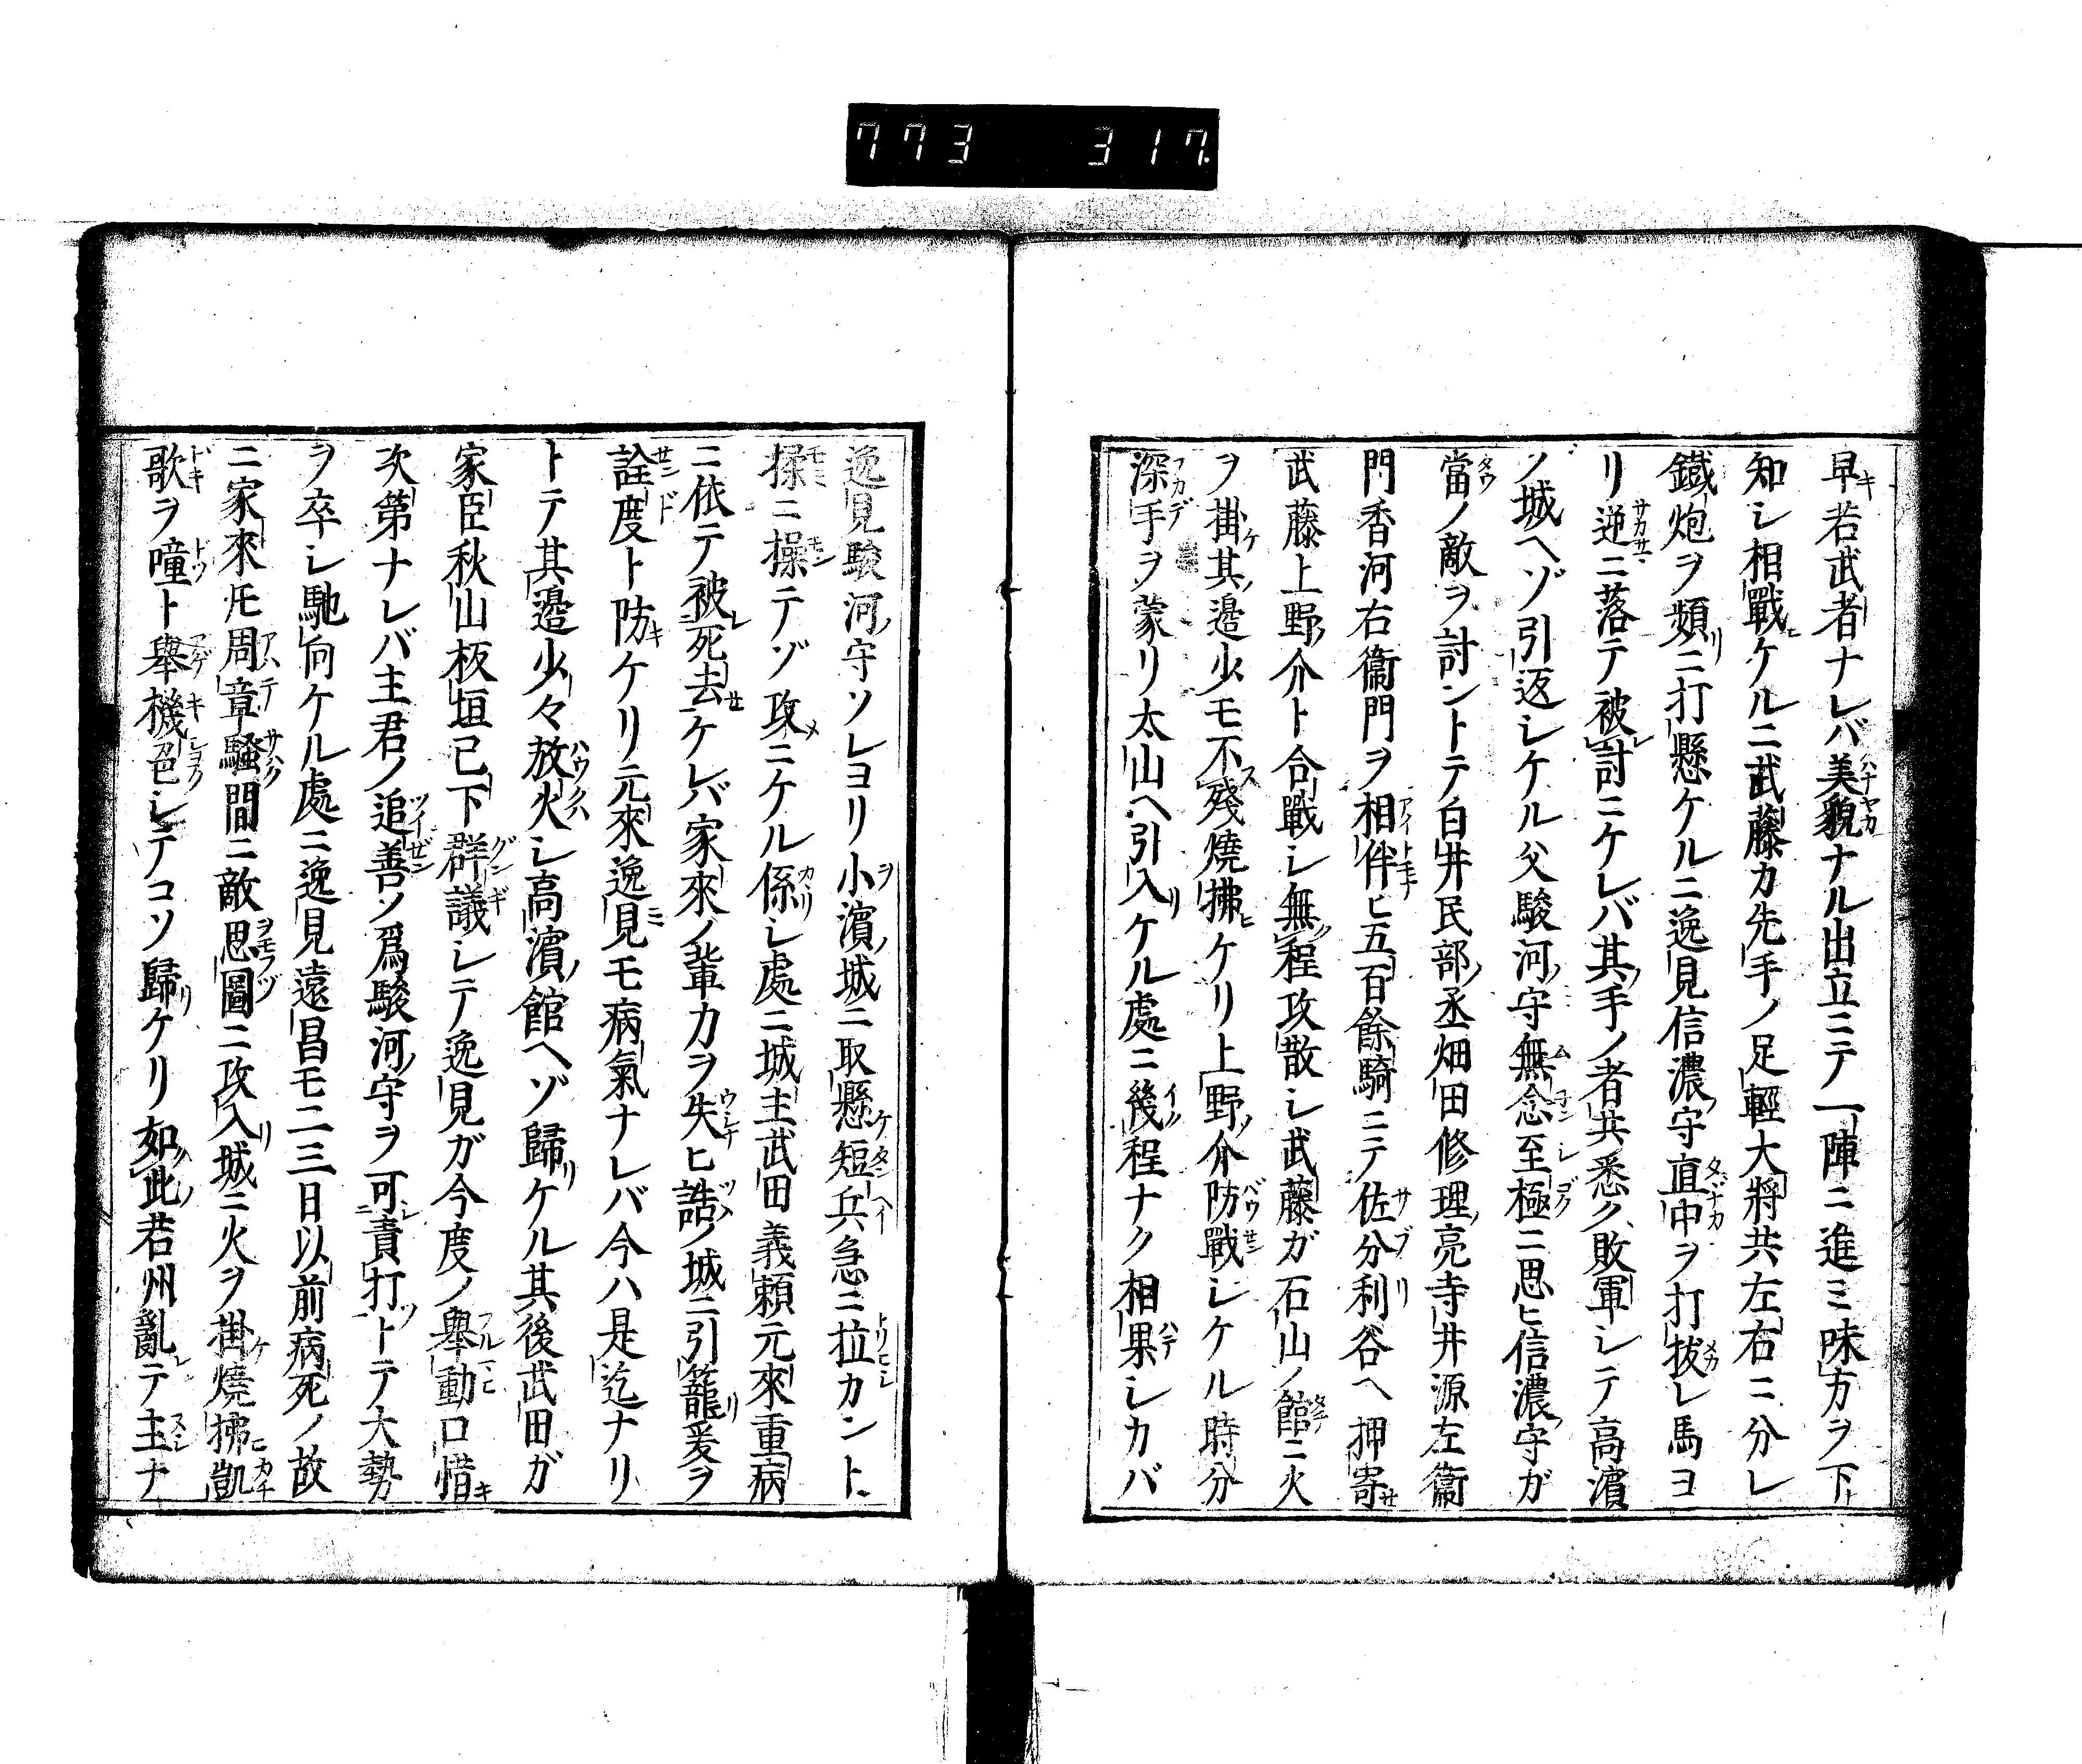 773 317.
早若武者ナレバ美貌ナル出立ニテ一陣ニ進ミ味方ヲ下
知シ相戰ケルニ武藤カ先手ノ足輕大將共左右ニ分レ
鐵炮ヲ頻ニ打懸ケルニ逸見信濃守直中ヲ打拔レ馬ヨ
リ逆ニ落テ被討ニケレバ其手ノ者共悉ク敗軍シテ高濱
ノ城ヘゾ引返シケル父駿河守無念至極ニ思ヒ信濃守ガ
當ノ敵ヲ討ントテ白井民部丞畑田修理亮寺井源左衞
門香河右衞門ヲ相伴ヒ五百餘騎ニテ佐分利谷ヘ押寄
武藤上野介ト合戰シ無程攻散シ武藤ガ石山ノ館ニ火
ヲ掛其邊少モ不殘燒拂ケリ上野介防戰シケル時分
深手ヲ蒙リ太山ヘ引入ケル處ニ幾程ナク相果シカバ
逸見駿河守ソレヨリ小濱ノ城ニ取懸短兵急ニ拉カント
揉ニ操テゾ攻ニケル係シ處ニ城主武田義頼元來重病
ニ依テ被死去ケレバ家來ノ輩力ヲ失ヒ詰ノ城ニ引籠爰ヲ
詮度ト防ケリ元來逸見モ病氣ナレバ今ハ是迄ナリ
トテ其邊少々放火シ高濱ノ館ヘゾ歸ケル其後武田ガ
家臣秋山板垣已下群議シテ逸見ガ今度ノ擧動口惜
次第ナレバ主君ノ追善ソ爲駿河守ヲ可責打トテ大勢
ヲ卒シ馳向ケル處ニ逸見遠昌モ二三日以前病死ノ故
ニ家來𪜈周章騷間ニ敵思圖ニ攻入城ニ火ヲ掛燒拂凱
歌ヲ噇ト擧機色シテコソ歸ケリ如此若州亂テ主ナ